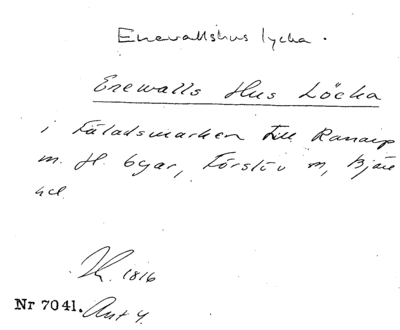 Enevallshus lycka.
Enewalls Hus Löcka
i Fäladsmarken till Ranarp
m. fl. byar, Förslöv sn, Bjäre
hd.
1816
Nr 7041. Akt 4.